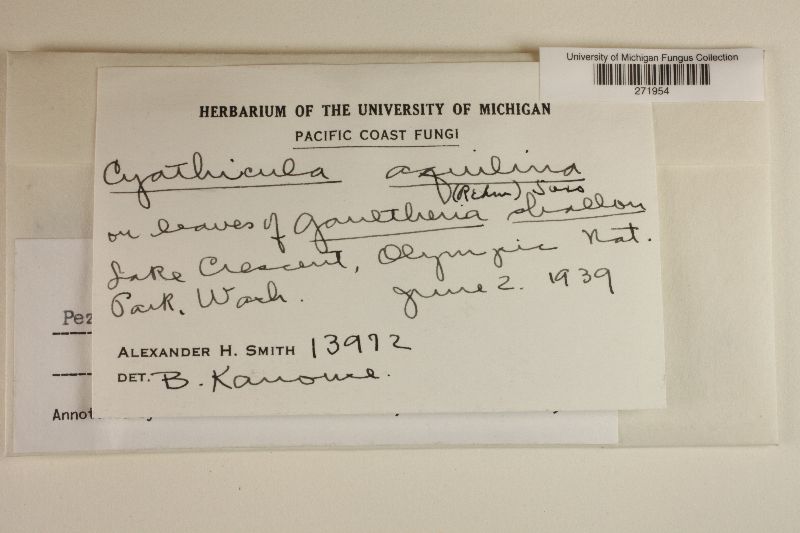 University of Michigan Fungus Collection
271954
HERBARIUM OF THE UNIVERSITY OF MICHIGAN
PACIFIC COAST FUNGI
Cyathicula aquilina
(Rehm) Sacc
on leaves of Gaultheria shallon
Lake Crescent, Olympic Nat.
Park, Wash. June 2. 1939
ALEXANDER H. SMITH 13972
DET. B. Kanouse.
Pez
Annot